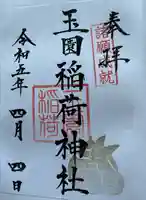 奉拝
諸願成就
玉園稲荷神社
稲荷
令和五年四月四日